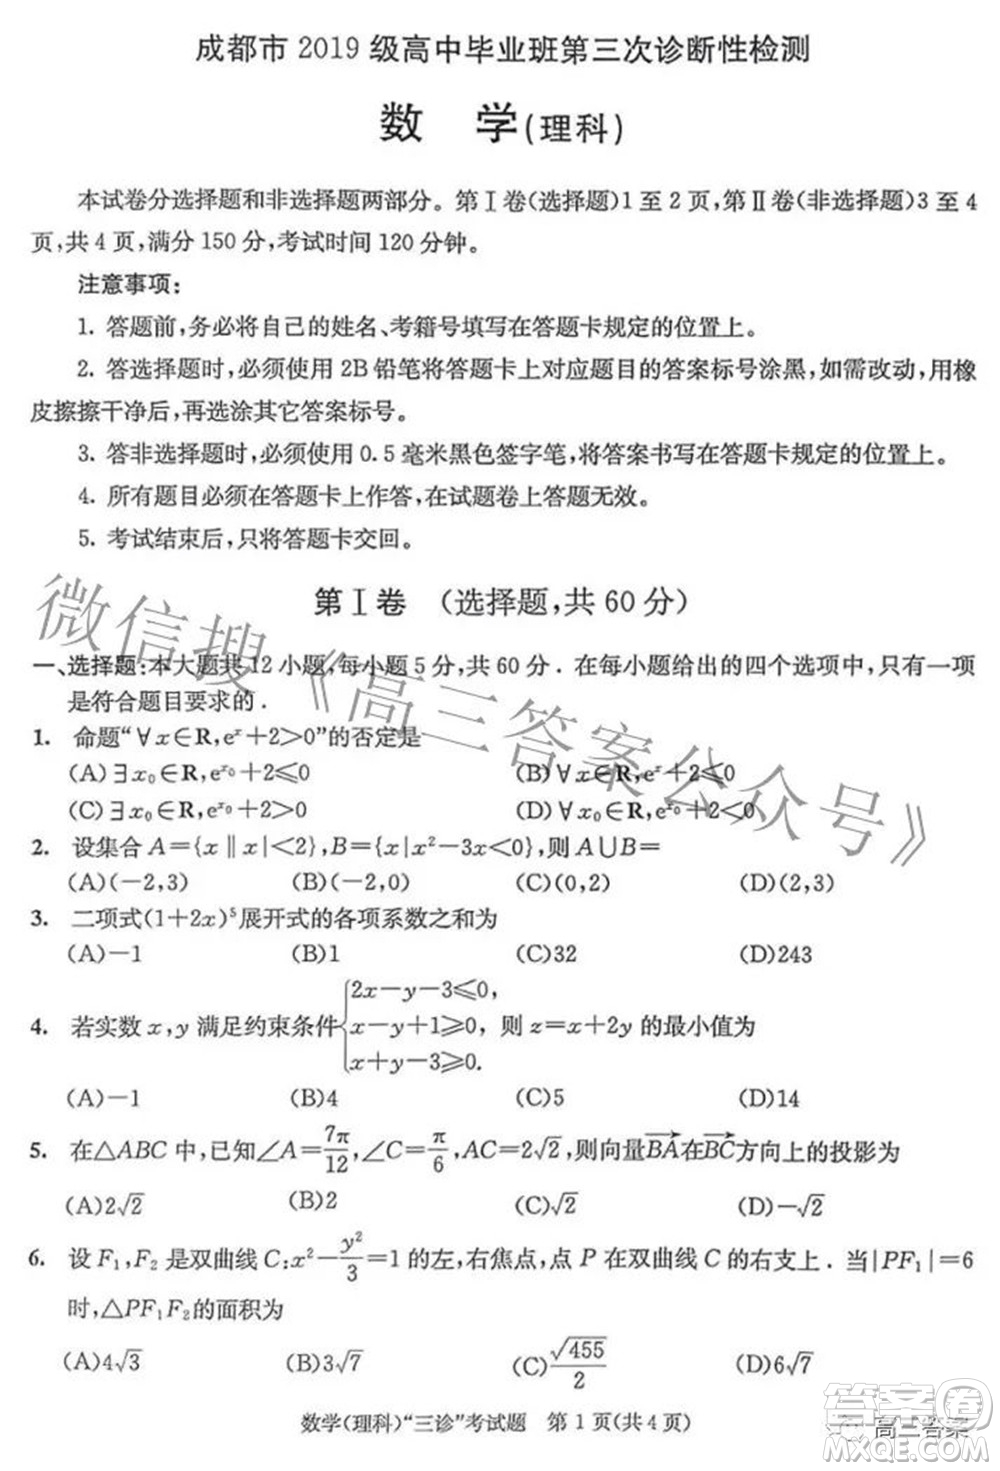 成都市 2019 级高中毕业班第三次诊断性检测
数 学(理科)
本试卷分选择题和非选择题两部分。第Ⅰ卷(选择题)1 至 2 页,第Ⅱ卷(非选择题)3 至 4
页,共 4 页,满分 150 分,考试时间 120 分钟。
注意事项:
1. 答题前,务必将自己的姓名、考籍号填写在答题卡规定的位置上。
2. 答选择题时,必须使用 2B 铅笔将答题卡上对应题目的答案标号涂黑,如需改动,用橡
皮擦擦干净后,再选涂其它答案标号。
3. 答非选择题时,必须使用 0.5 毫米黑色签字笔,将答案书写在答题卡规定的位置上。
4. 所有题目必须在答题卡上作答,在试题卷上答题无效。
5. 考试结束后,只将答题卡交回。
微信搜《高三答案公众号》
第Ⅰ卷 (选择题,共 60 分)
一、选择题:本大题共 12 小题,每小题 5 分,共 60 分.在每小题给出的四个选项中,只有一项
是符合题目要求的.
1. 命题“∀x∈R,eˣ+2>0”的否定是
(A)∃x₀∈R,e^{x₀}+2⩽0 (B)∀x∈R,eˣ+2⩽0
(C)∃x₀∈R,e^{x₀}+2>0 (D)∀x₀∈R,e^{x₀}+2<0
2. 设集合 A={x‖x|<2},B={x|x²-3x<0},则 A∪B=
(A)(-2,3) (B)(-2,0) (C)(0,2) (D)(2,3)
3. 二项式(1+2x)⁵展开式的各项系数之和为
(A)-1 (B)1 (C)32 (D)243
4. 若实数 x,y 满足约束条件{2x-y-3⩽0, x-y+1⩾0, x+y-3⩾0. 则 z=x+2y 的最小值为
(A)-1 (B)4 (C)5 (D)14
5. 在△ABC 中,已知∠A=7π/12,∠C=π/6,AC=2√2,则向量BA→在BC→方向上的投影为
(A)2√2 (B)2 (C)√2 (D)-√2
6. 设 F₁,F₂ 是双曲线 C:x²-y²/3=1 的左,右焦点,点 P 在双曲线 C 的右支上.当|PF₁|=6
时,△PF₁F₂的面积为
(A)4√3 (B)3√7 (C)√455/2 (D)6√7
数学(理科)“三诊”考试题 第 1 页(共 4 页)
高三答案
答案卷
MXQE.COM